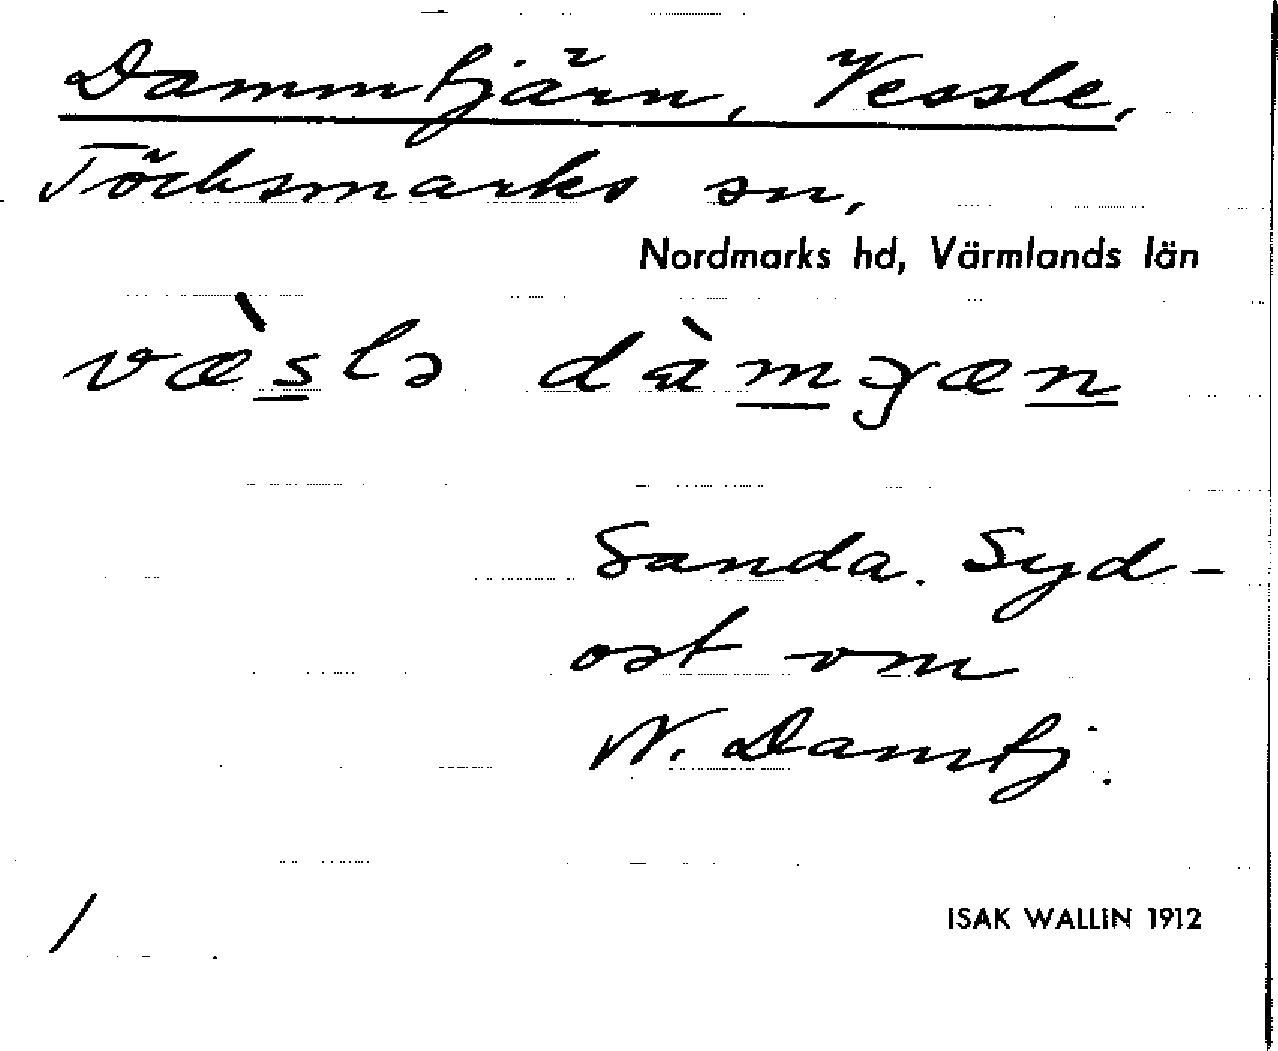 Dammtjärn, Vessle,
Töcksmarks sn,
Nordmarks hd, Värmlands län
væ̀slə dàmɟæn
Sanda. Syd-
ost om
N. Damtj.
/
ISAK WALLIN 1912